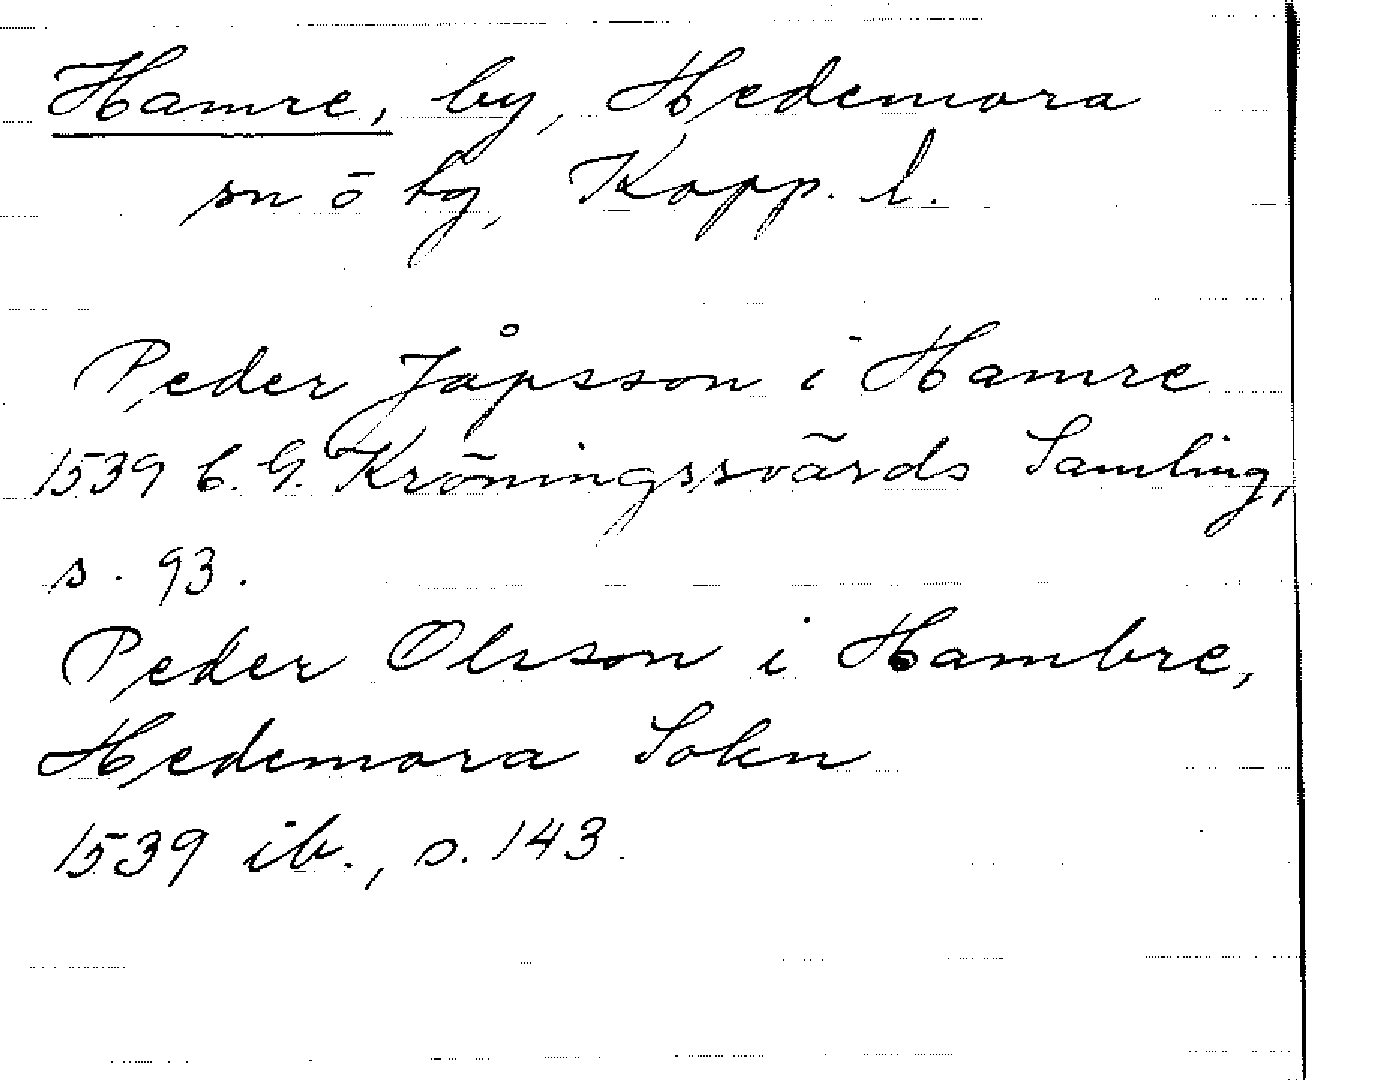 Hamre, by, Hedemora
sn ö hg, Kopp. l.
Peder Jåpsson i Hamre
1539 C. G. Kröningssvärds Samling,
s. 93.
Peder Olsson i Hambre,
Hedemora Sokn
1539 ib., s. 143.